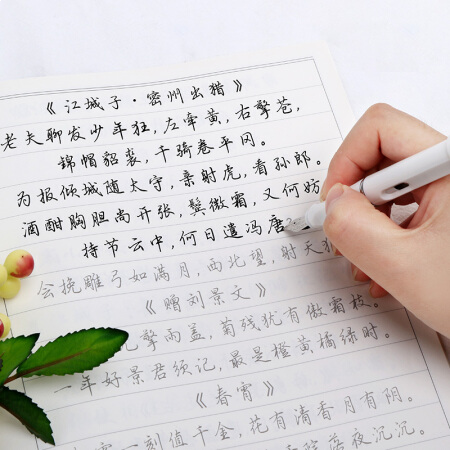 《江城子·密州出猎》
老夫聊发少年狂,左牵黄,右擎苍,
锦帽貂裘,千骑卷平冈。
为报倾城随太守,亲射虎,看孙郎。
酒酣胸胆尚开张,鬓微霜,又何妨
持节云中,何日遣冯唐
会挽雕弓如满月,西北望,射天
《赠刘景文》
擎雨盖,菊残犹有傲霜枝。
一年好景君须记,最是橙黄橘绿时。
《春宵》
一刻值千金,花有清香月有阴。
落夜沉沉。